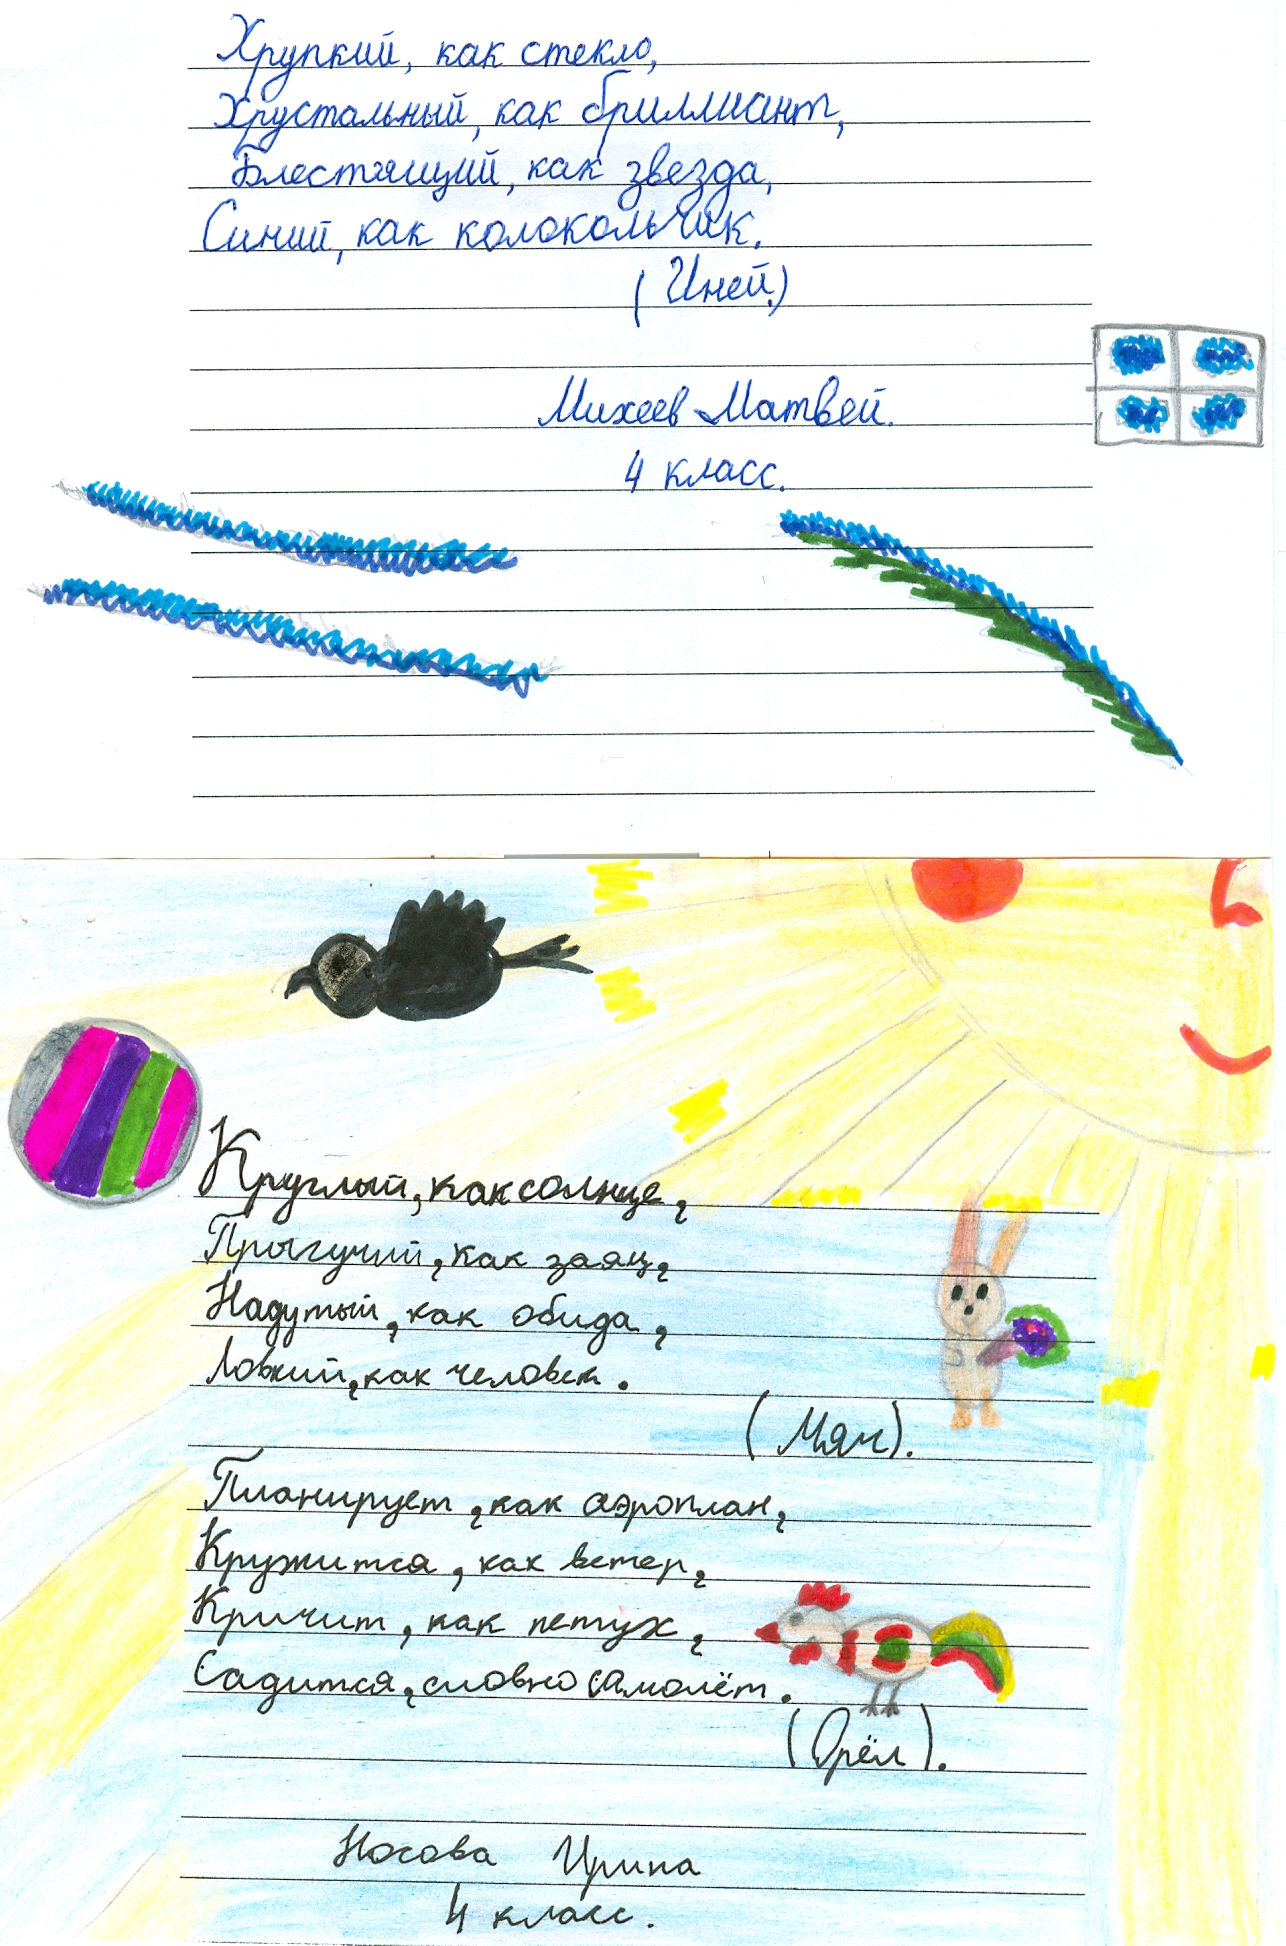 Хрупкий, как стекло,
Хрустальный, как бриллиант,
Блестящий, как звезда,
Синий, как колокольчик.
(Иней.)
Михеев Матвей.
4 класс.
Круглый, как солнце,
Прыгучий, как заяц,
Надутый, как обида,
Ловкий, как человек.
(Мяч).
Планирует, как аэроплан,
Кружится, как ветер,
Кричит, как петух,
Садится, словно самолёт.
(Орёл).
Носова Ирина
4 класс.